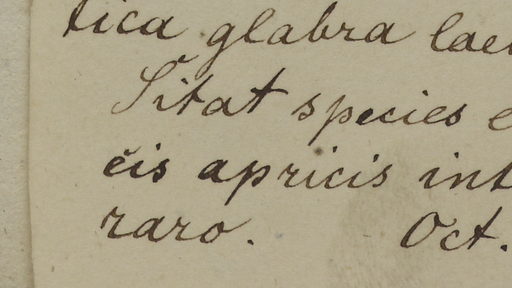 tica glabra lae
Sitat species e
cis apricis int
raro. Oct.